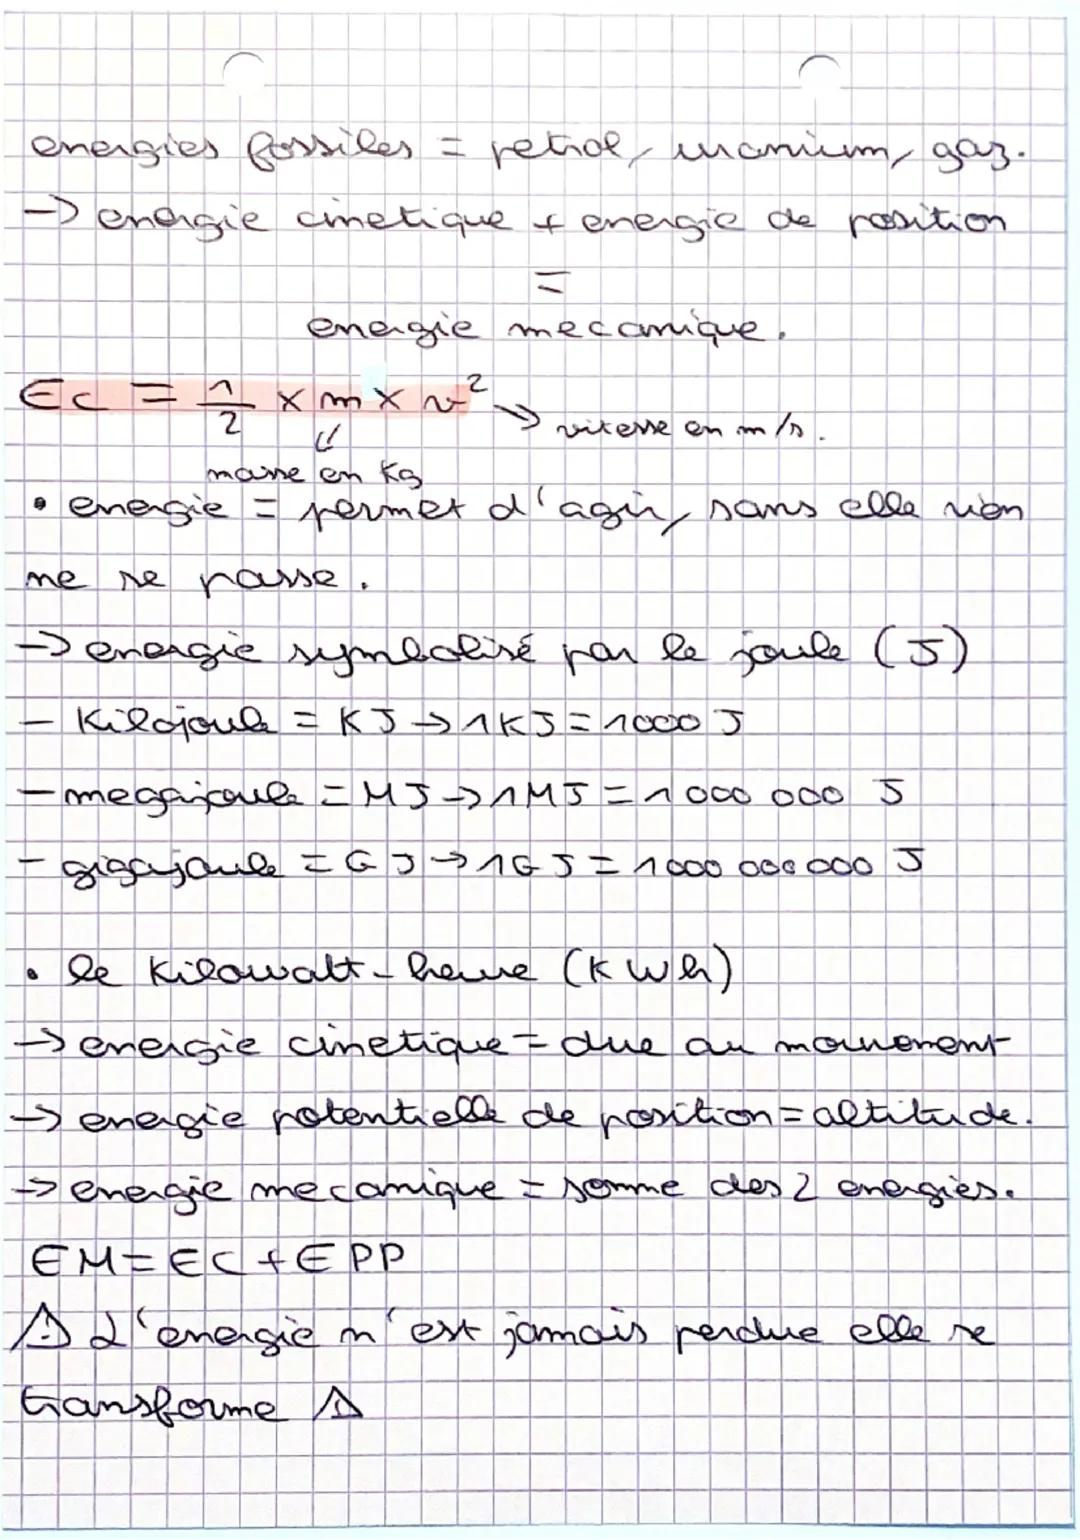 energies fossiles = petrol, uranium, gaz.
-> energie cinetique + energie de position
=
energie mecanique.
Ec = 1/2 x m x v² -> vitesse en m/s.
masse en Kg
• energie = permet d'agir, sans elle rien
ne se passe.
-> energie symbolisé par le joule (J)
- Kilojoule = KJ -> 1KJ = 1000 J
- megajoule = MJ -> 1MJ = 1 000 000 J
- gigajoule = GJ -> 1GJ = 1 000 000 000 J
• le Kilowatt-heure (KWh)
-> energie cinetique = due au mouvement
-> energie potentielle de position = altitude.
-> energie mecanique = somme des 2 energies.
EM = EC + EPP
⚠ L'energie n'est jamais perdue elle se
transforme ⚠